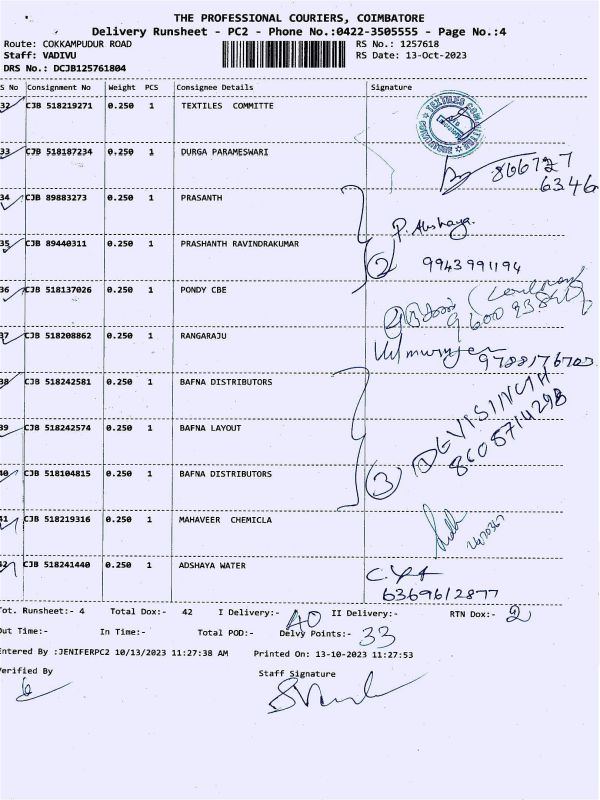 THE PROFESSIONAL COURIERS, COIMBATORE
Delivery Runsheet - PC2 - Phone No.:0422-3505555 - Page No.:4
Route: COKKAMPUDUR ROAD
RS No.: 1257618
Staff: VADIVU
RS Date: 13-Oct-2023
DRS No.: DCJB125761804
S No Consignment No Weight PCS Consignee Details Signature
32 CJB 518219271 0.250 1 TEXTILES COMMITTE
33 CJB 518187234 0.250 1 DURGA PARAMESWARI
866727
6346
34 CJB 89883273 0.250 1 PRASANTH
P. Akshaya.
35 CJB 89440311 0.250 1 PRASHANTH RAVINDRAKUMAR
2 9943991194
36 CJB 518137026 0.250 1 PONDY CBE
37 CJB 518208862 0.250 1 RANGARAJU
9788176703
38 CJB 518242581 0.250 1 BAFNA DISTRIBUTORS
39 CJB 518242574 0.250 1 BAFNA LAYOUT
DEVISINGH
8608714298
40 CJB 518104815 0.250 1 BAFNA DISTRIBUTORS
3
41 CJB 518219316 0.250 1 MAHAVEER CHEMICLA
2470367
42 CJB 518241440 0.250 1 ADSHAYA WATER
6369612877
Tot. Runsheet:- 4 Total Dox:- 42 I Delivery:- 40 II Delivery:- RTN Dox:- 2
Out Time:- In Time:- Total POD:- Delvy Points:- 33
Entered By :JENIFERPC2 10/13/2023 11:27:38 AM Printed On: 13-10-2023 11:27:53
Verified By Staff Signature